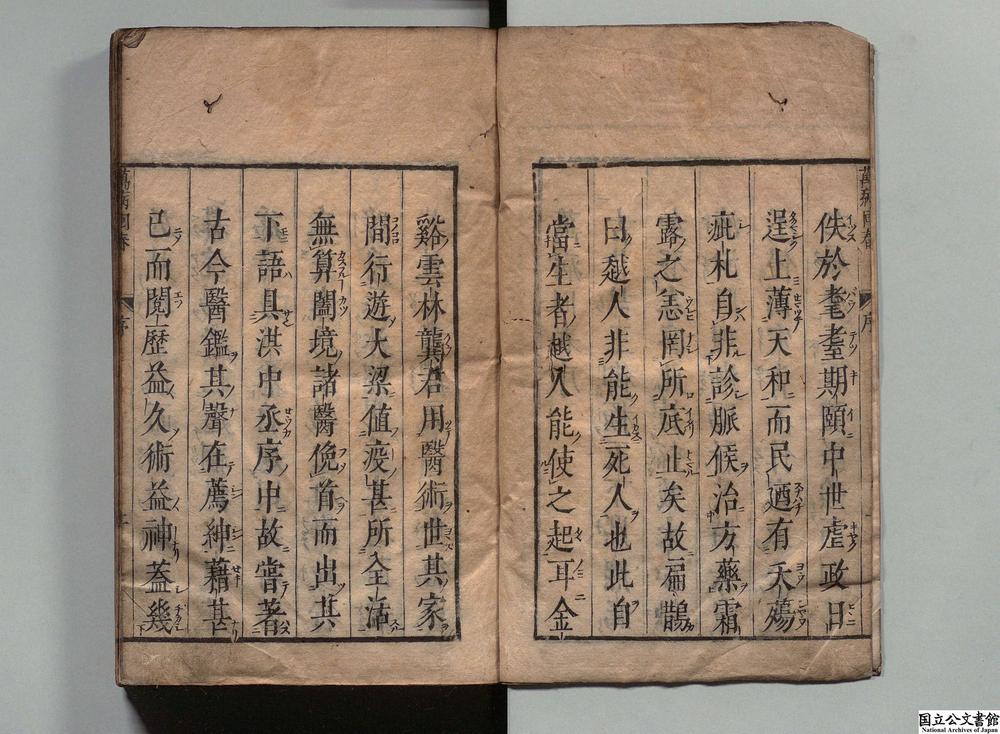 佚於耄耋期頤中世虐政日
逞上薄天和而民廼有夭殤
疵札自非診脈候治方藥霜
露之恙罔所底止矣故扁鵲
曰越人非能生死人也此自
當生者越人能使之起耳金
谿雲林龔君用醫術世其家
間行遊大梁值疫甚所全活
無算闔境諸醫俛首而出其
下語具洪中丞序中故嘗著
古今醫鑑其聲在薦紳藉甚
已而閱歷益久術益神蓋幾
萬病回春
序
萬病回春
序
国立公文書館
National Archives of Japan